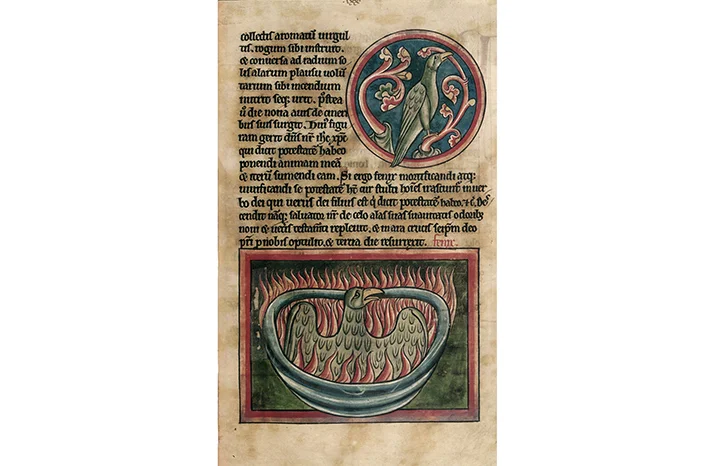 collectis aromatū uirgul
tis. rogum sibi instruit.
& conuersa ad radium so
lis alarum plausu uolun
tarium sibi incendium
nutrit seq; urit. postea
ū die nona auis de cineri
bus suis surgit. Hui' figu
ram gerit dn̄s nr̄ ihc̄ xpc̄
qui dicit potestatē habeo
ponendi animam meā
& iterū sumendi eam. Si ergo fenix mortificandi atq;
uiuificandi se potestatē ht̄ cur stulti hoīes irascunt̄ in uer
bo dei qui uerus dei filius est q̄ dicit potestatē habeo &c. Des
cendit nāq; saluator nr̄ de celo alas suas suauitatis odorib;
noui & ueteris testam̄ti repleuit. & in ara crucis seip̄m deo
pr̄i p nobis optulit. & tercia die resurrexit. fenix.